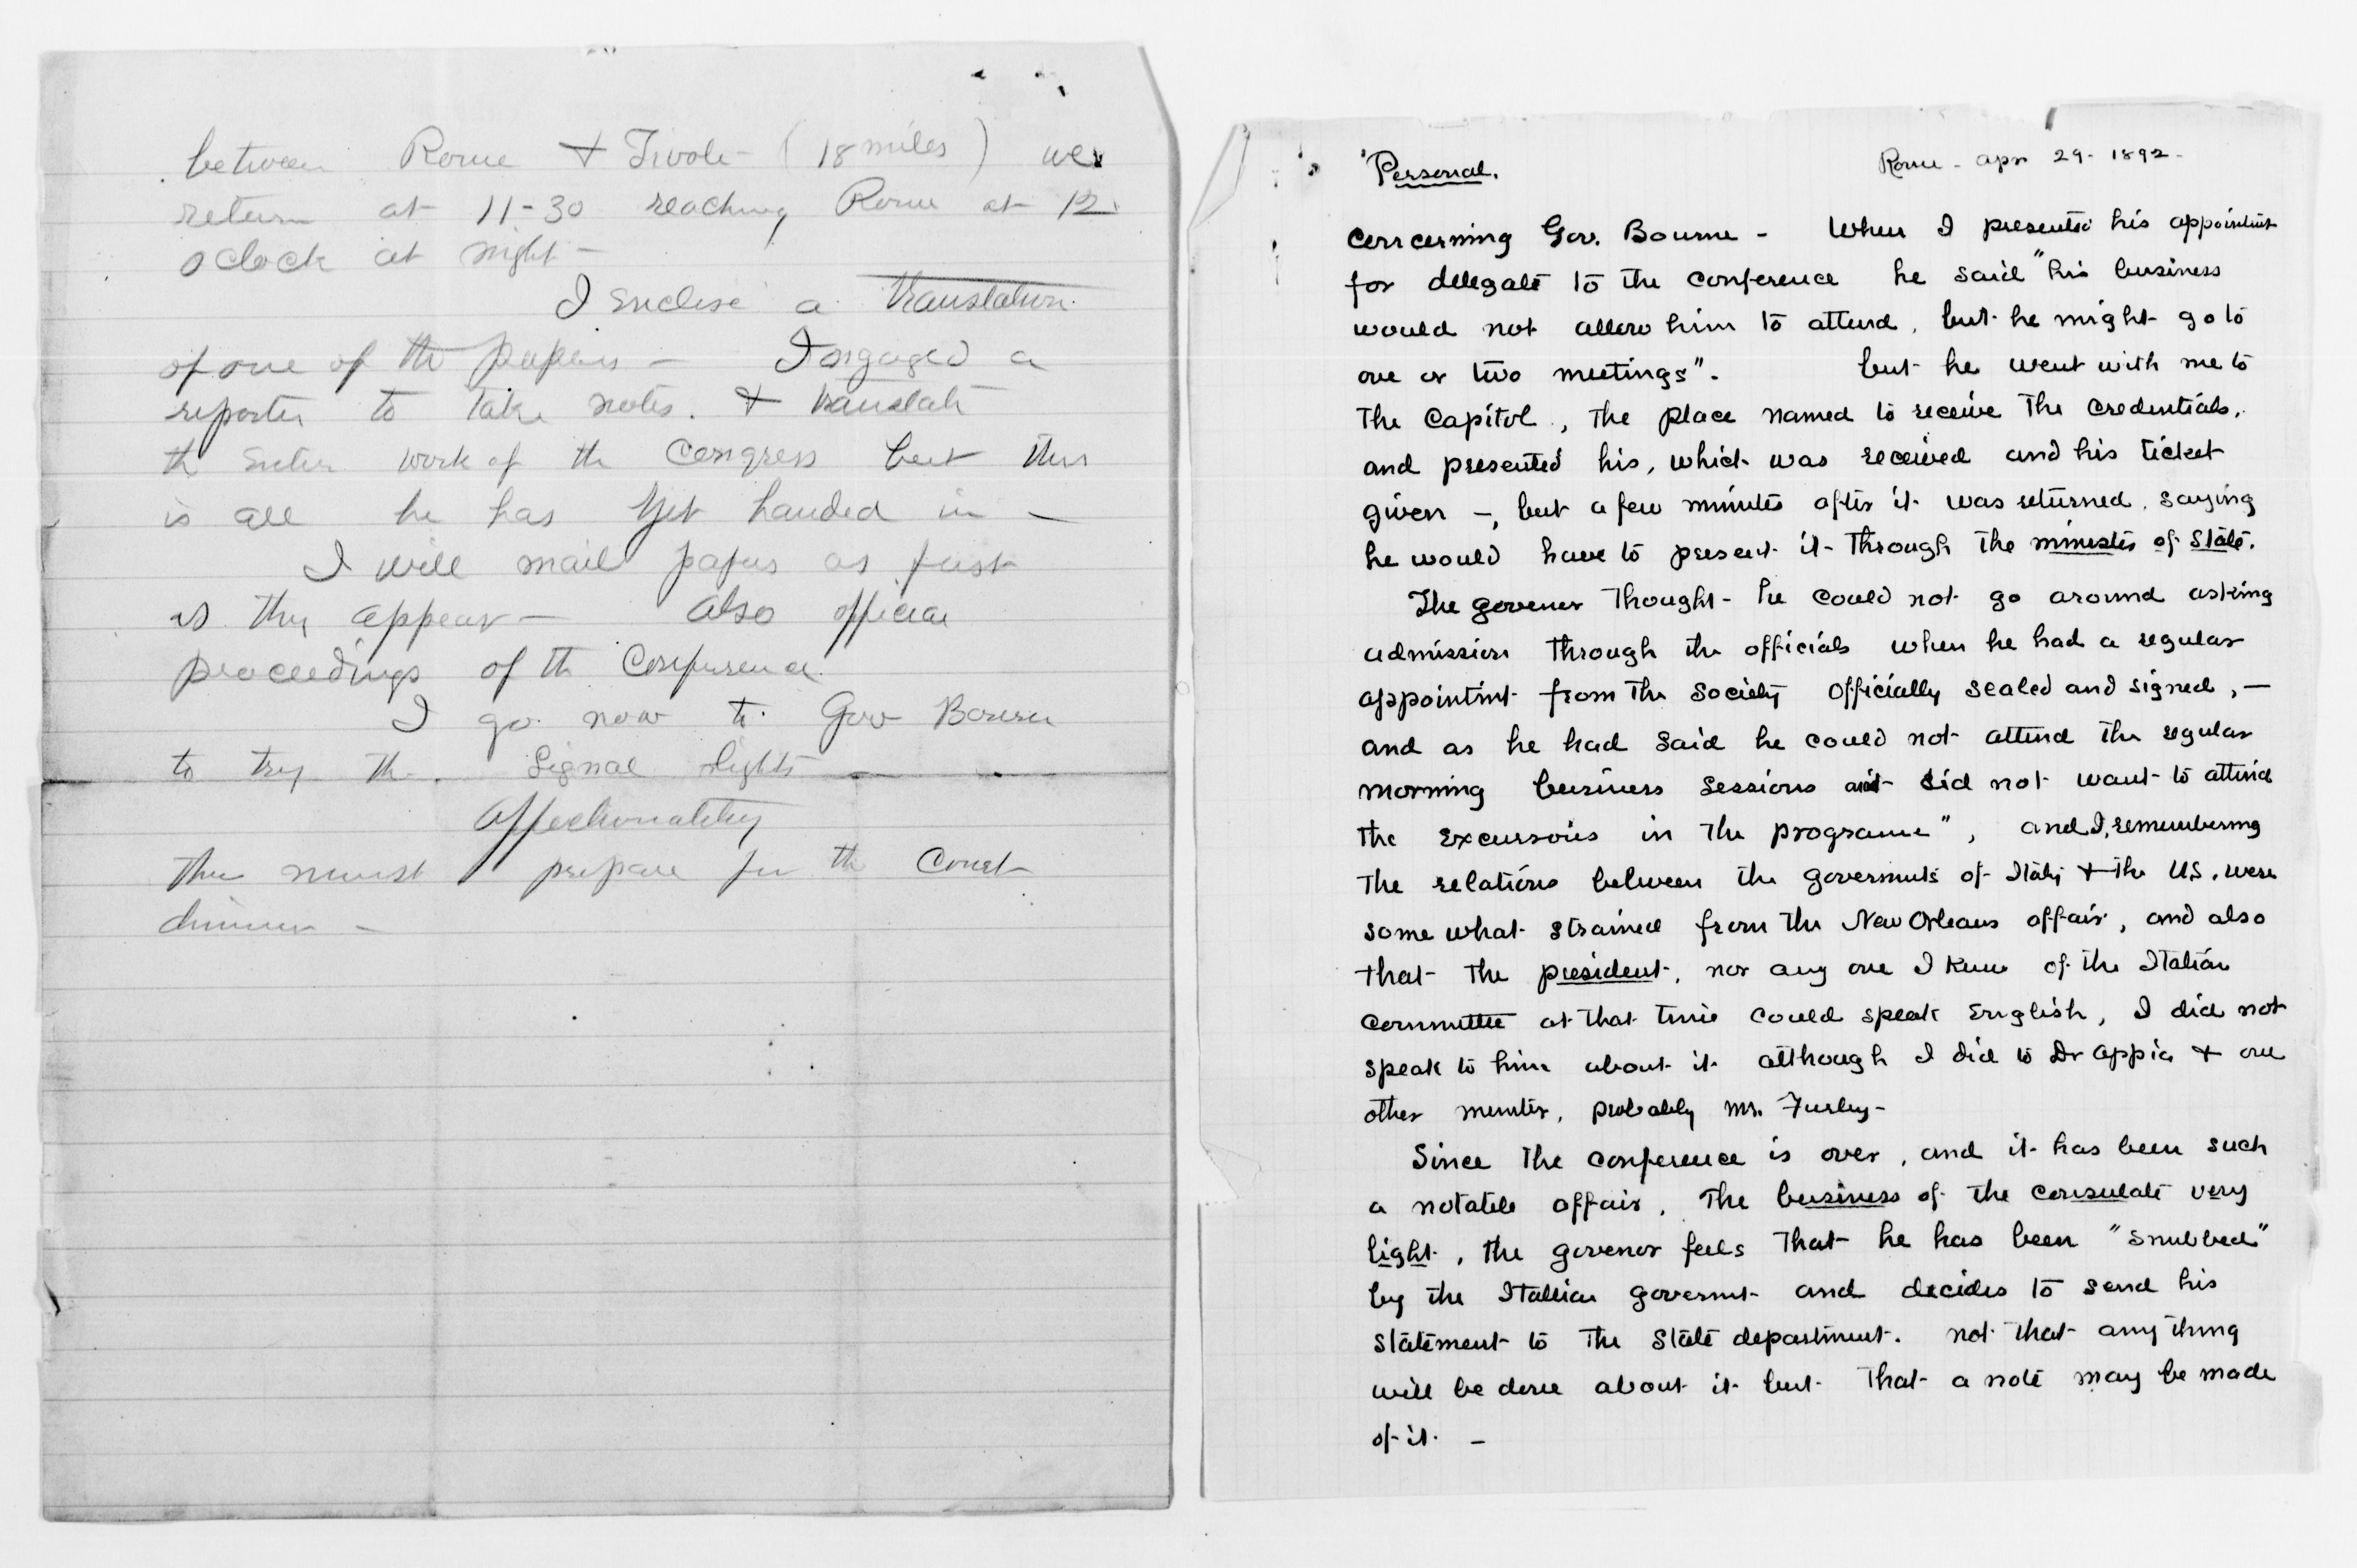 between Rome & Tivoli - (18 miles) we
return at 11-30 reaching Rome at 12.
oclock at night -
I enclose a translation
of one of the papers - I engaged a
reporter to take notes. & translate
the enter work of the Congress but this
is all he has yet handed in -
I will mail papers as fast
as they appear - also official
proceedings of the Conference.
I go now to Gov Bourn
to try the Signal Lights -
Affectionately
Then must prepare for the Court
dinner -
Personal.
Rome - apr 29 - 1892 -
Concerning Gov. Bourne - When I presented his appointmt
for delegate to the conference he said "his business
would not allow him to attend, but he might go to
one or two meetings". but he went with me to
the Capitol, the place named to receive the credentials,
and presented his, which was received and his ticket
given -, but a few minutes after it was returned, saying
he would have to present it through the minister of State.
The govenor thought he could not go around asking
admission through the officials when he had a regular
appointmt from the Society officially sealed and signed, -
and as he had said he could not attend the regular
morning business sessions and did not want to attend
the excursions in the programe", and I, remembering
the relations between the governmts of Italy & the U.S. were
some what strained from the New Orleans affair, and also
that the president, nor any one I knew of the Italian
Committee at that time could speak English, I did not
speak to him about it although I did to Dr Appia & one
other member, probably Mr. Furley -
Since the conference is over, and it has been such
a notable affair, the business of the consulate very
light, the govenor feels that he has been "snubbed"
by the Italian governmt and decides to send his
statement to the State department. not that any thing
will be done about it but that a note may be made
of it. -